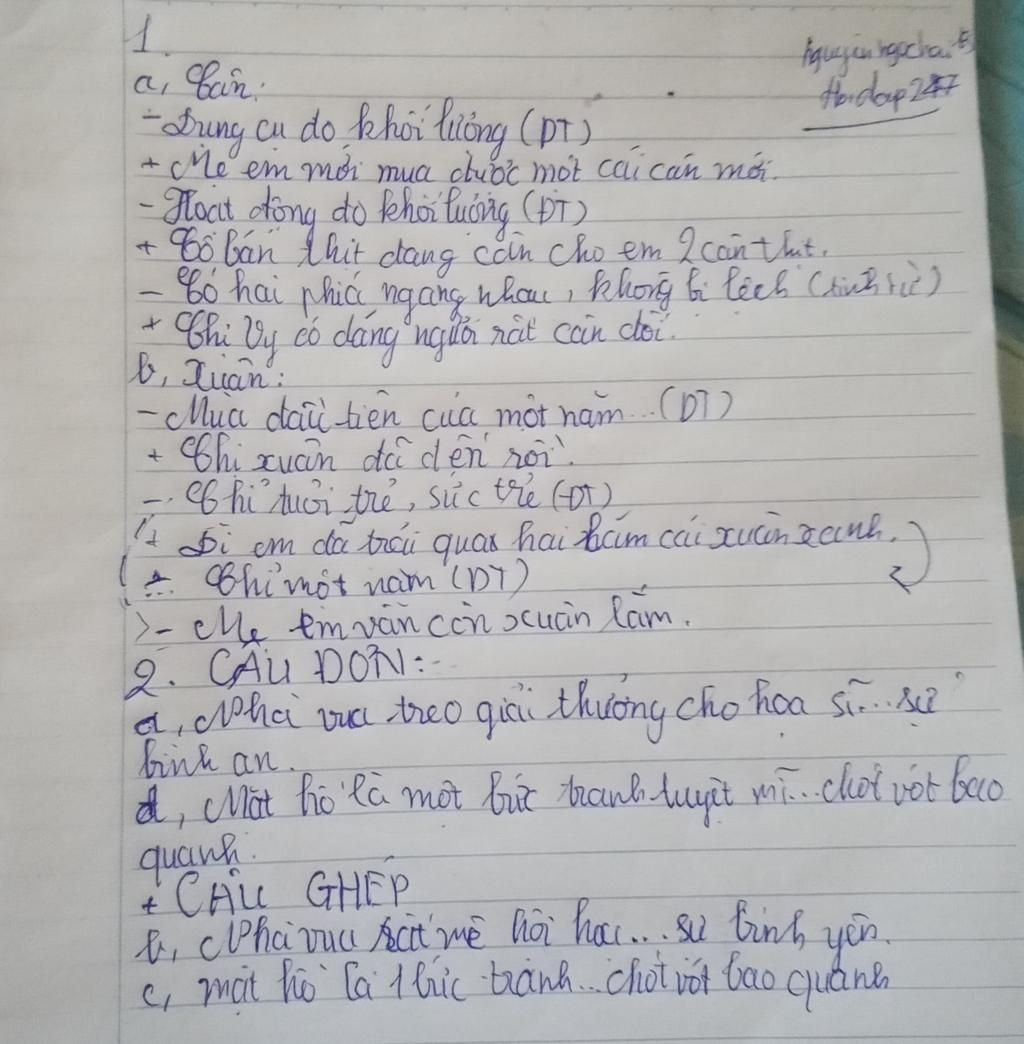 1.
nguyenngochai
Hoidap247
a, Cân:
- Dụng cụ đo khối lượng (DT)
+ Mẹ em mới mua được một cái cân mới.
- Hoạt động đo khối lượng (ĐT)
+ Cô bán thịt đang cân cho em 2 cân thịt.
- Có hai phía ngang nhau, không bị lệch (tính từ)
+ Chị Vy có dáng người rất cân đối.
b, Xuân:
- Mùa đầu tiên của một năm... (DT)
+ Chị xuân đã đến rồi.
- Chỉ tuổi trẻ, sức trẻ (DT)
+ Dì em đã trải qua hai năm cái xuân xanh.
Chỉ một năm (DT)
- Mẹ em vẫn còn xuân lắm.
2. CÂU ĐƠN:
a, Nhà vua treo giải thưởng cho họa sĩ... sự
bình an.
d, Mặt hồ là một bức tranh tuyệt mĩ... chót vót bao
quanh.
+ CÂU GHÉP
b, Nhà vua rất mê hội họa... sự bình yên.
c, mặt hồ là 1 bức tranh... chót vót bao quanh